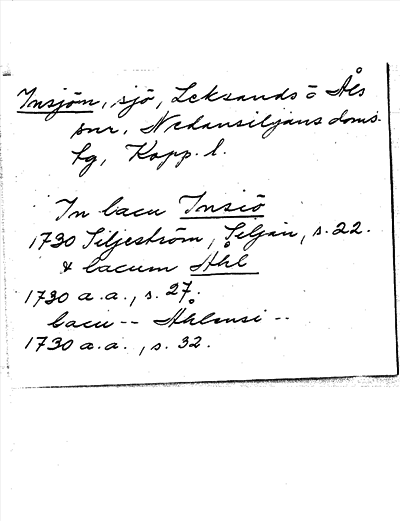 Insjön, sjö, Leksands o Åls
snr, Nedansiljans doms.
tg, Kopp. l.
In lacu Insiö
1730 Siljeström, Siljan, s. 22.
& lacum Åhl
1730 a. a., s. 27.
lacu -- Åhlensi --
1730 a. a., s. 32.